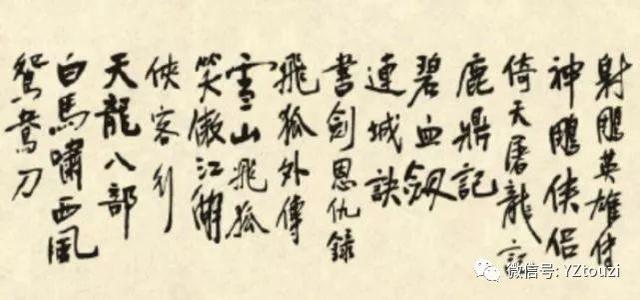 射鵰英雄传
神鵰侠侣
倚天屠龍記
鹿鼎記
碧血劔
連城訣
書劍恩仇錄
飛狐外傳
雪山飛狐
笑傲江湖
俠客行
天龍八部
白馬嘯西風
鴛鴦刀
微信号: YZtouzi